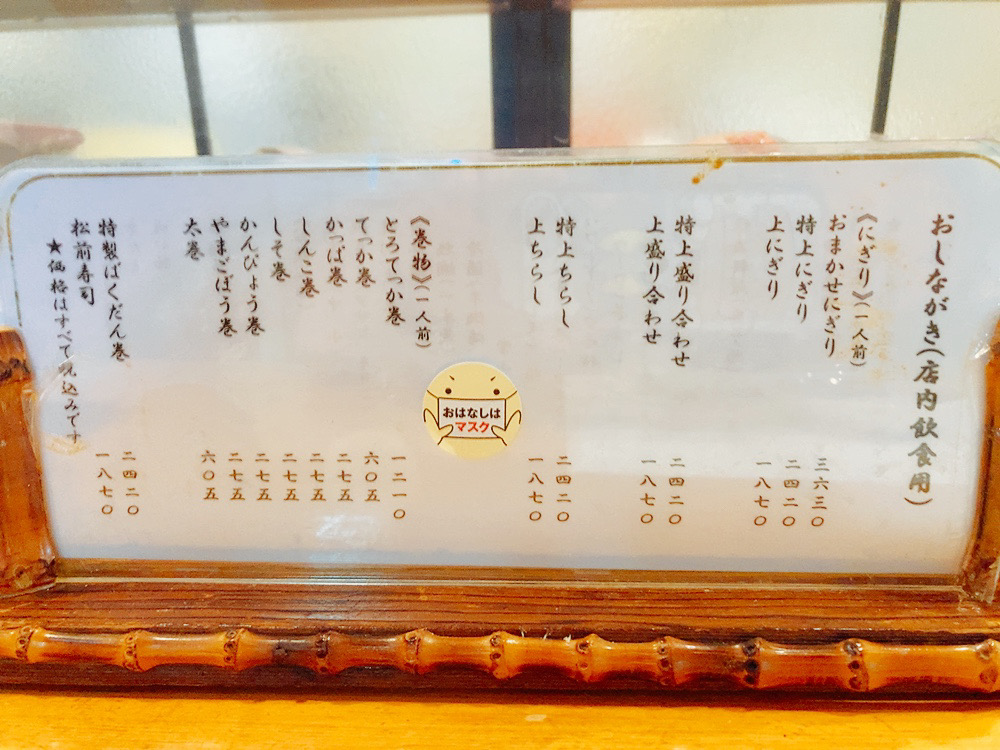 おしながき(店内飲食用)
《にぎり》(一人前)
おまかせにぎり 三六三〇
特上にぎり 二四二〇
上にぎり 一八七〇
特上盛り合わせ 二四二〇
上盛り合わせ 一八七〇
特上ちらし 二四二〇
上ちらし 一八七〇
《巻物》(一人前)
とろてっか巻 一二一〇
てっか巻 六〇五
かっぱ巻 二七五
しんこ巻 二七五
しそ巻 二七五
かんぴょう巻 二七五
やまごぼう巻 二七五
太巻 六〇五
特製ばくだん巻 二四二〇
松前寿司 一八七〇
★価格はすべて税込みです
おはなしは
マスク